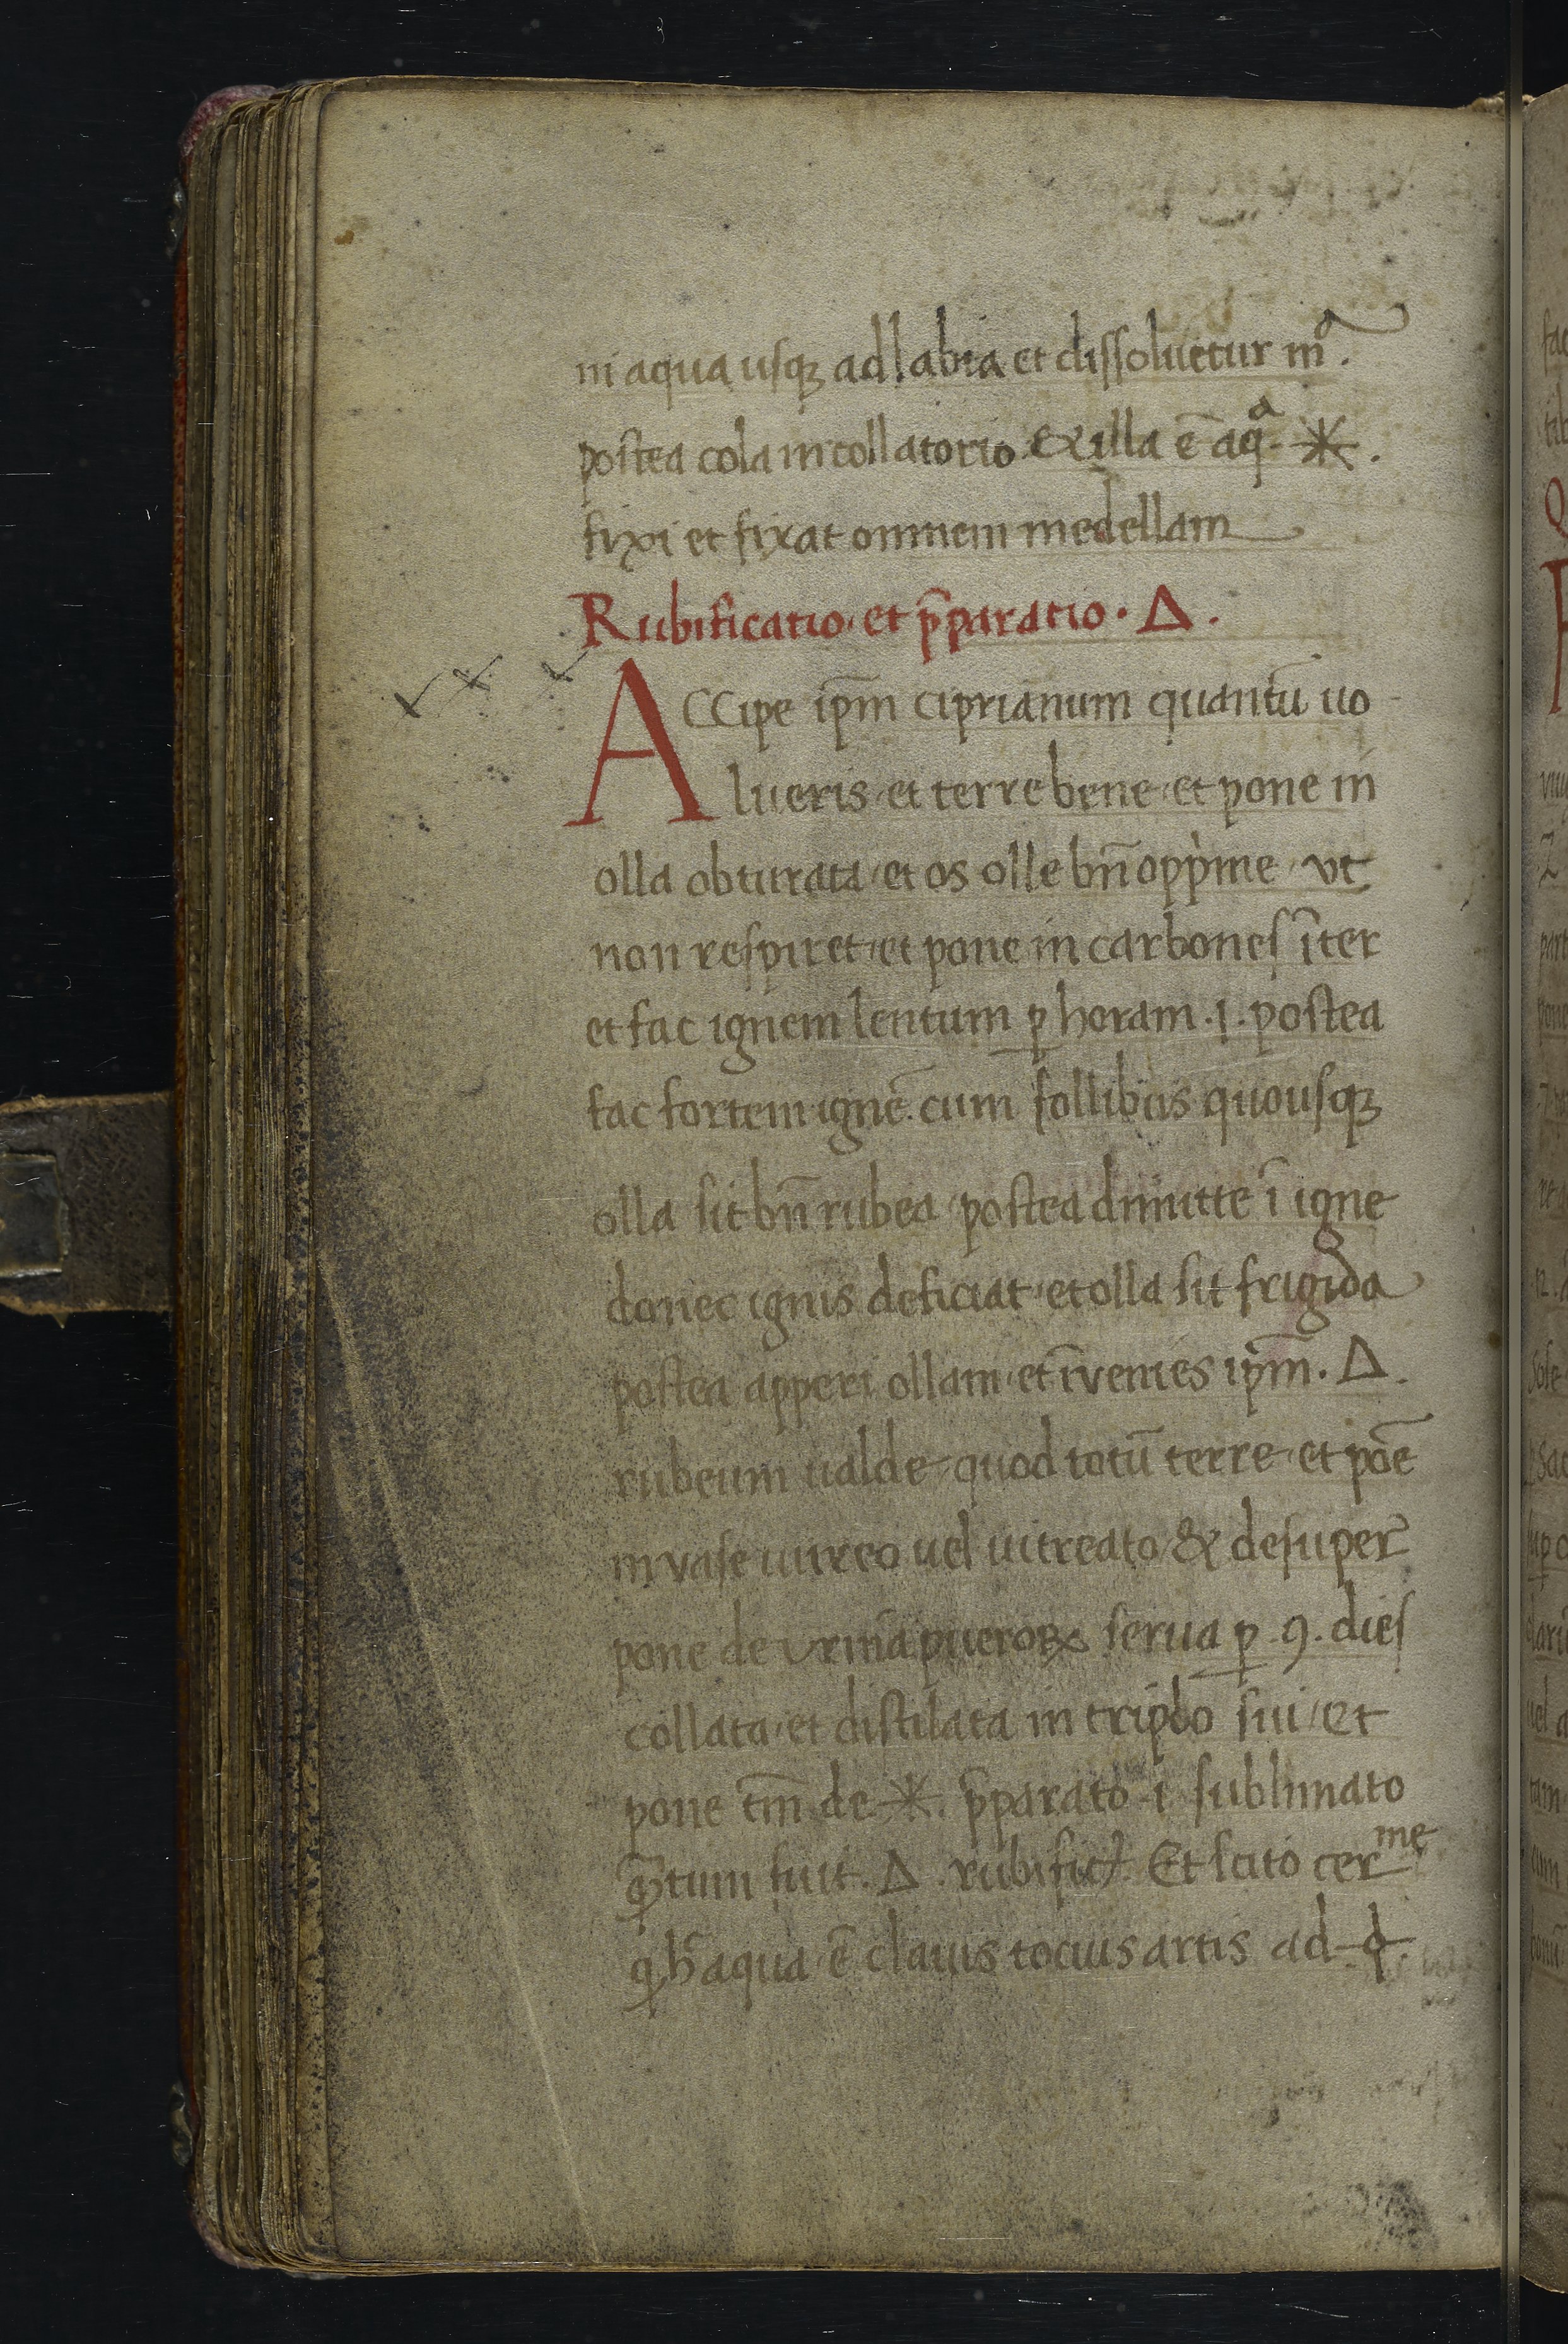 in aqua usqꝫ ad labia et dissoluetur mͣ.
postea cola in collatorio & illa ē aqͣ. ✳.
fixi et fixat omnem medellam
Rubificatio. et p̄paratio. Δ.
ACCipe ip̄m ciprianum quantū uo
lueris et terre bene et pone in
olla obturata et os olle bn̄ opp̍me vt
non respiret et pone in carbones īter
et fac ignem lentum ꝑ horam .i. postea
fac fortem ignē cum follibus quousqꝫ
olla sit bn̄ rubea postea dimitte ī igne
donec ignis deficiat et olla sit frigida
postea apperi ollam et īvenies ip̄m. Δ.
rubeum ualde quod totū terre et poē
in vase uireo uel uitreato & desuper
pone de vrina pueroꝝ serua ꝑ .9. dies
collata et distilata in triplo sui et
pone tm̄ de ✳. p̄parato i sublimato
qᷓtum fuit. Δ. rubific̄. Et scito cerᵐᵉ
ꝙ h̄ aqua ē clauis tocius artis ad